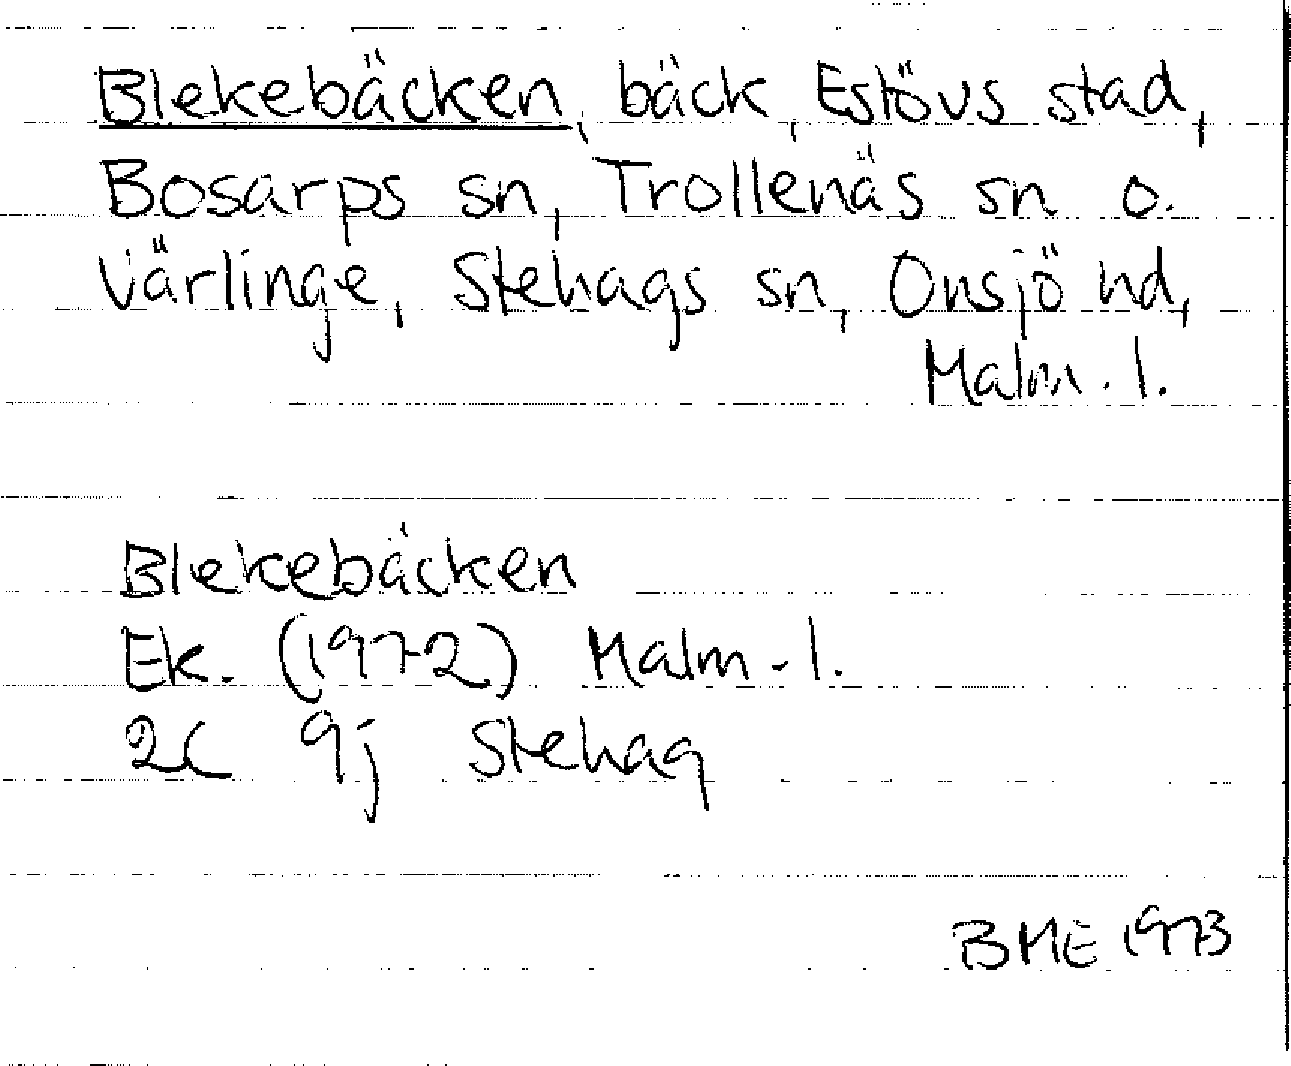 Blekebäcken, bäck, Eslövs stad,
Bosarps sn, Trollenäs sn o.
Värlinge, Stehags sn, Onsjö hd,
Malm. l.
Blekebäcken
Ek. (1972) Malm. l.
2C 9j Stehag
BME 1973